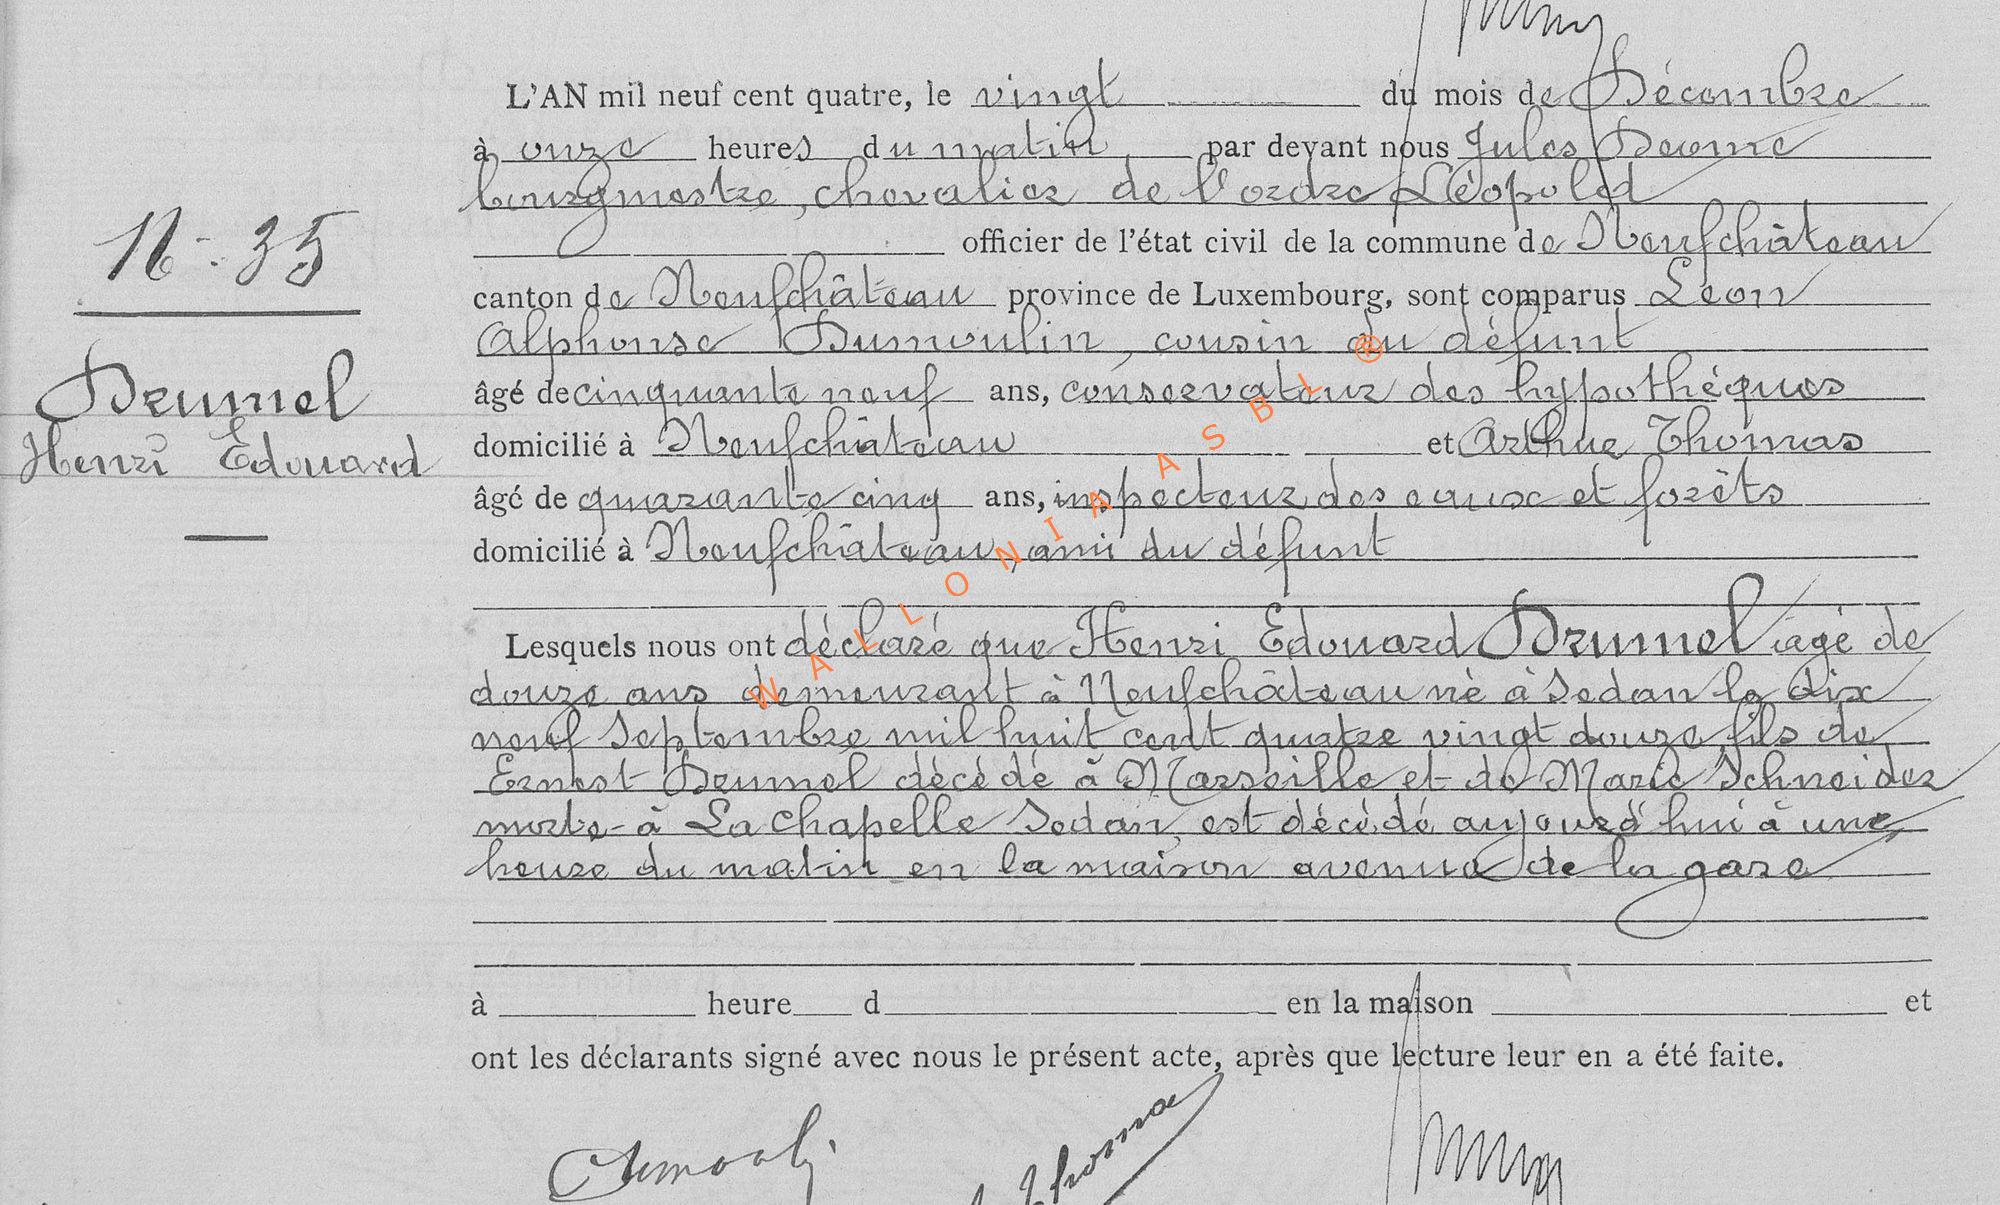 L'AN mil neuf cent quatre, le vingt du mois de Décembre
à onze heures du matin par devant nous Jules
bourgmestre, chevalier de l'ordre Léopold
officier de l'état civil de la commune de Neufchâteau
N° 35
canton de Neufchâteau province de Luxembourg, sont comparus Léon
Alphonse Dumoulin, cousin du défunt
Drumel
âgé de cinquante neuf ans, conservateur des hypothéques
Henri Edouard
domicilié à Neufchâteau et Arthur Thomas
âgé de quarante cinq ans, inspecteur des eaux et forêts
domicilié à Neufchâteau, ami du défunt
Lesquels nous ont déclaré que Henri Edouard Drumel âgé de
douze ans demeurant à Neufchâteau né à Sedan le dix
neuf Septembre mil huit cent quatre vingt douze fils de
Ernest Drumel décédé à Marseille et de Marie Schneider
morte à La Chapelle Sedan, est décédé aujourd'hui à une
heure du matin en la maison avenue de la gare
à heure d en la maison et
ont les déclarants signé avec nous le présent acte, après que lecture leur en a été faite.
Thomas
WALLONIA ASBL ®